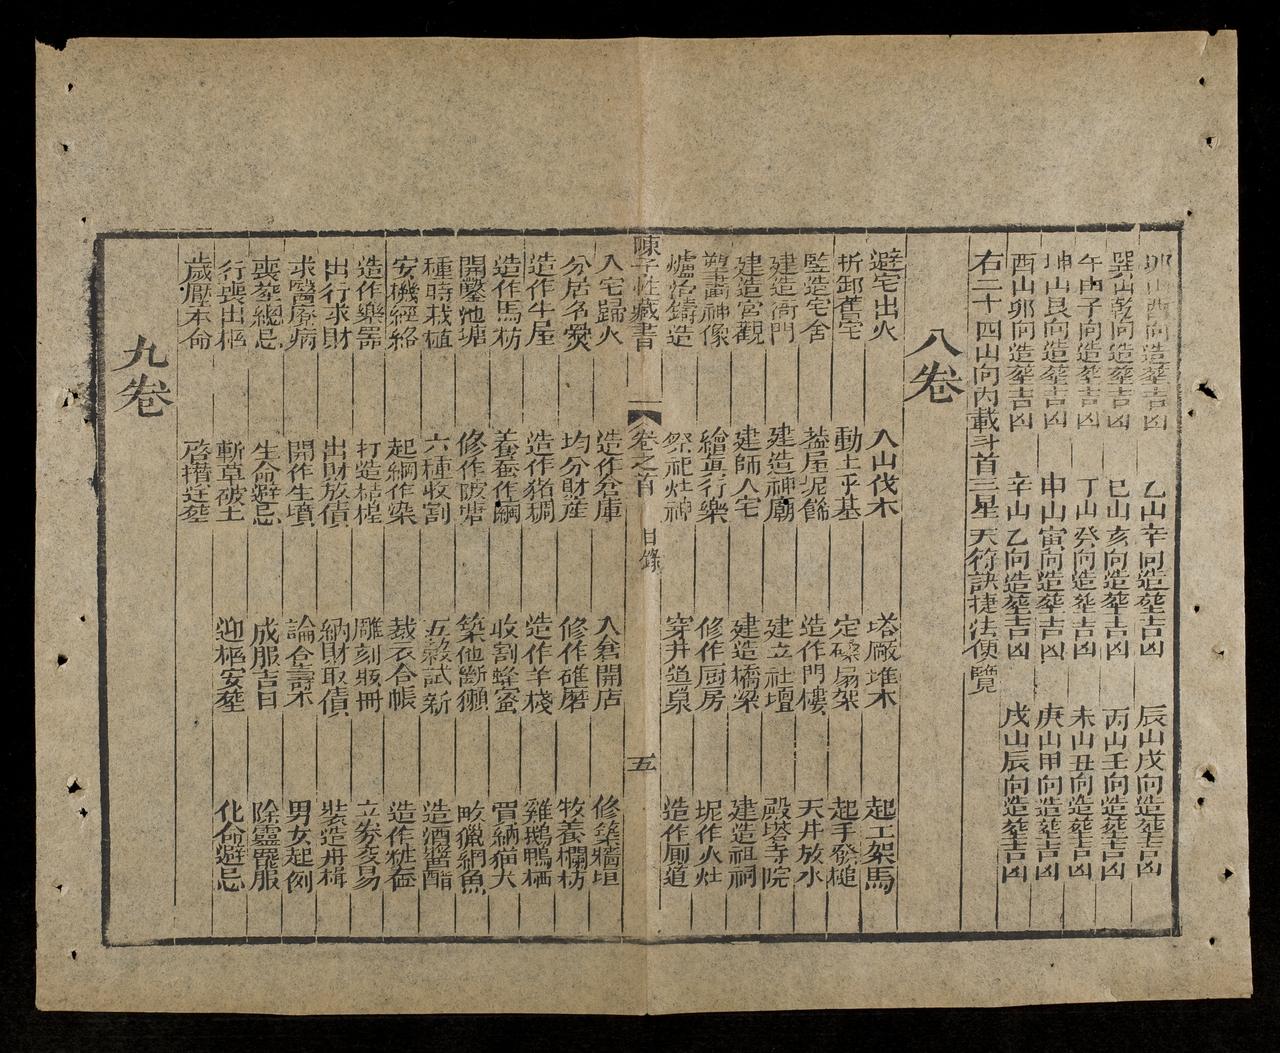 卯山酉向造塟吉凶 乙山辛向造塟吉凶 辰山戌向造塟吉凶
巽山乾向造塟吉凶 巳山亥向造塟吉凶 丙山壬向造塟吉凶
午山子向造塟吉凶 丁山癸向造塟吉凶 未山丑向造塟吉凶
坤山艮向造塟吉凶 申山寅向造塟吉凶 庚山甲向造塟吉凶
酉山卯向造塟吉凶 辛山乙向造塟吉凶 戌山辰向造塟吉凶
右二十四山向內載斗首三星天符訣捷法便覽
八卷
避宅出火 入山伐木 塔厰堆木 起工架馬
折卸舊宅 動土平基 定磉扇架 起手發槌
監造宅舍 葢屋坭餙 造作門樓 天井放水
建造衙門 建造神廟 建立社壇 殿塔寺院
建造宮觀 建師人宅 建造橋梁 建造祖祠
塑畫神像 繪眞行樂 修作厨房 坭作火灶
爐冶鑄造 祭祀灶神 穿井道泉 造作厠道
陳子性藏書 卷之首 目錄 五
入宅歸火 造作倉庫 入倉開店 修築牆垣
分居各爨 均分財産 修作碓磨 牧養欄枋
造作牛屋 造作猪稠 造作羊棧 雞鵝鴨栖
造作馬枋 養蚕作繭 收割蜂蜜 買納猫犬
開鑿池塘 修作陂塘 築池斷獺 畋獵網魚
種時栽植 六種收割 五穀試新 造酒醬醋
安機經絡 起綱作染 裁衣合帳 造作牲蚕
造作樂噐 打造桔槔 雕刻販冊 立劵交易
出行求財 出財放債 納財取債 裝造舟楫
求醫療病 開作生墳 論合壽木 男女起例
喪塟總忌 生命避忌 成服吉日 除靈罷服
行喪出柩 斬草破土 迎柩安塟 化命避忌
歲壓本命 啓欑迁塟
九卷